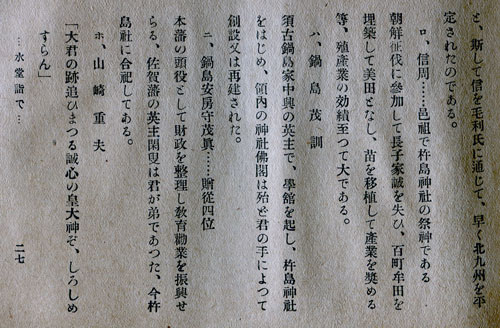 と、斯して信を毛利氏に通じて、早く北九州を平
定されたのである。
ロ、信周……邑祖で杵島神社の祭神である
朝鮮征伐に參加して長子家誠を失ひ、百町牟田を
埋築して美田となし、苗を移植して產業を奬める
等、殖產業の効績至つて大である。
ハ、鍋島茂訓
須古鍋島家中興の英主で、學館を起し、杵島神社
をはじめ、領內の神社佛閣は殆ど君の手によつて
創設又は再建された。
ニ、鍋島安房守茂眞……贈従四位
本藩の頭役として財政を整理し敎育勸業を振興せ
らる、佐賀藩の英主閑叟は君が弟であつた、今杵
島社に合祀してある。
ホ、山崎重夫
「大君の跡追ひまつる誠心の皇大神ぞ、しろしめ
すらん」
…水堂詣で…
二七